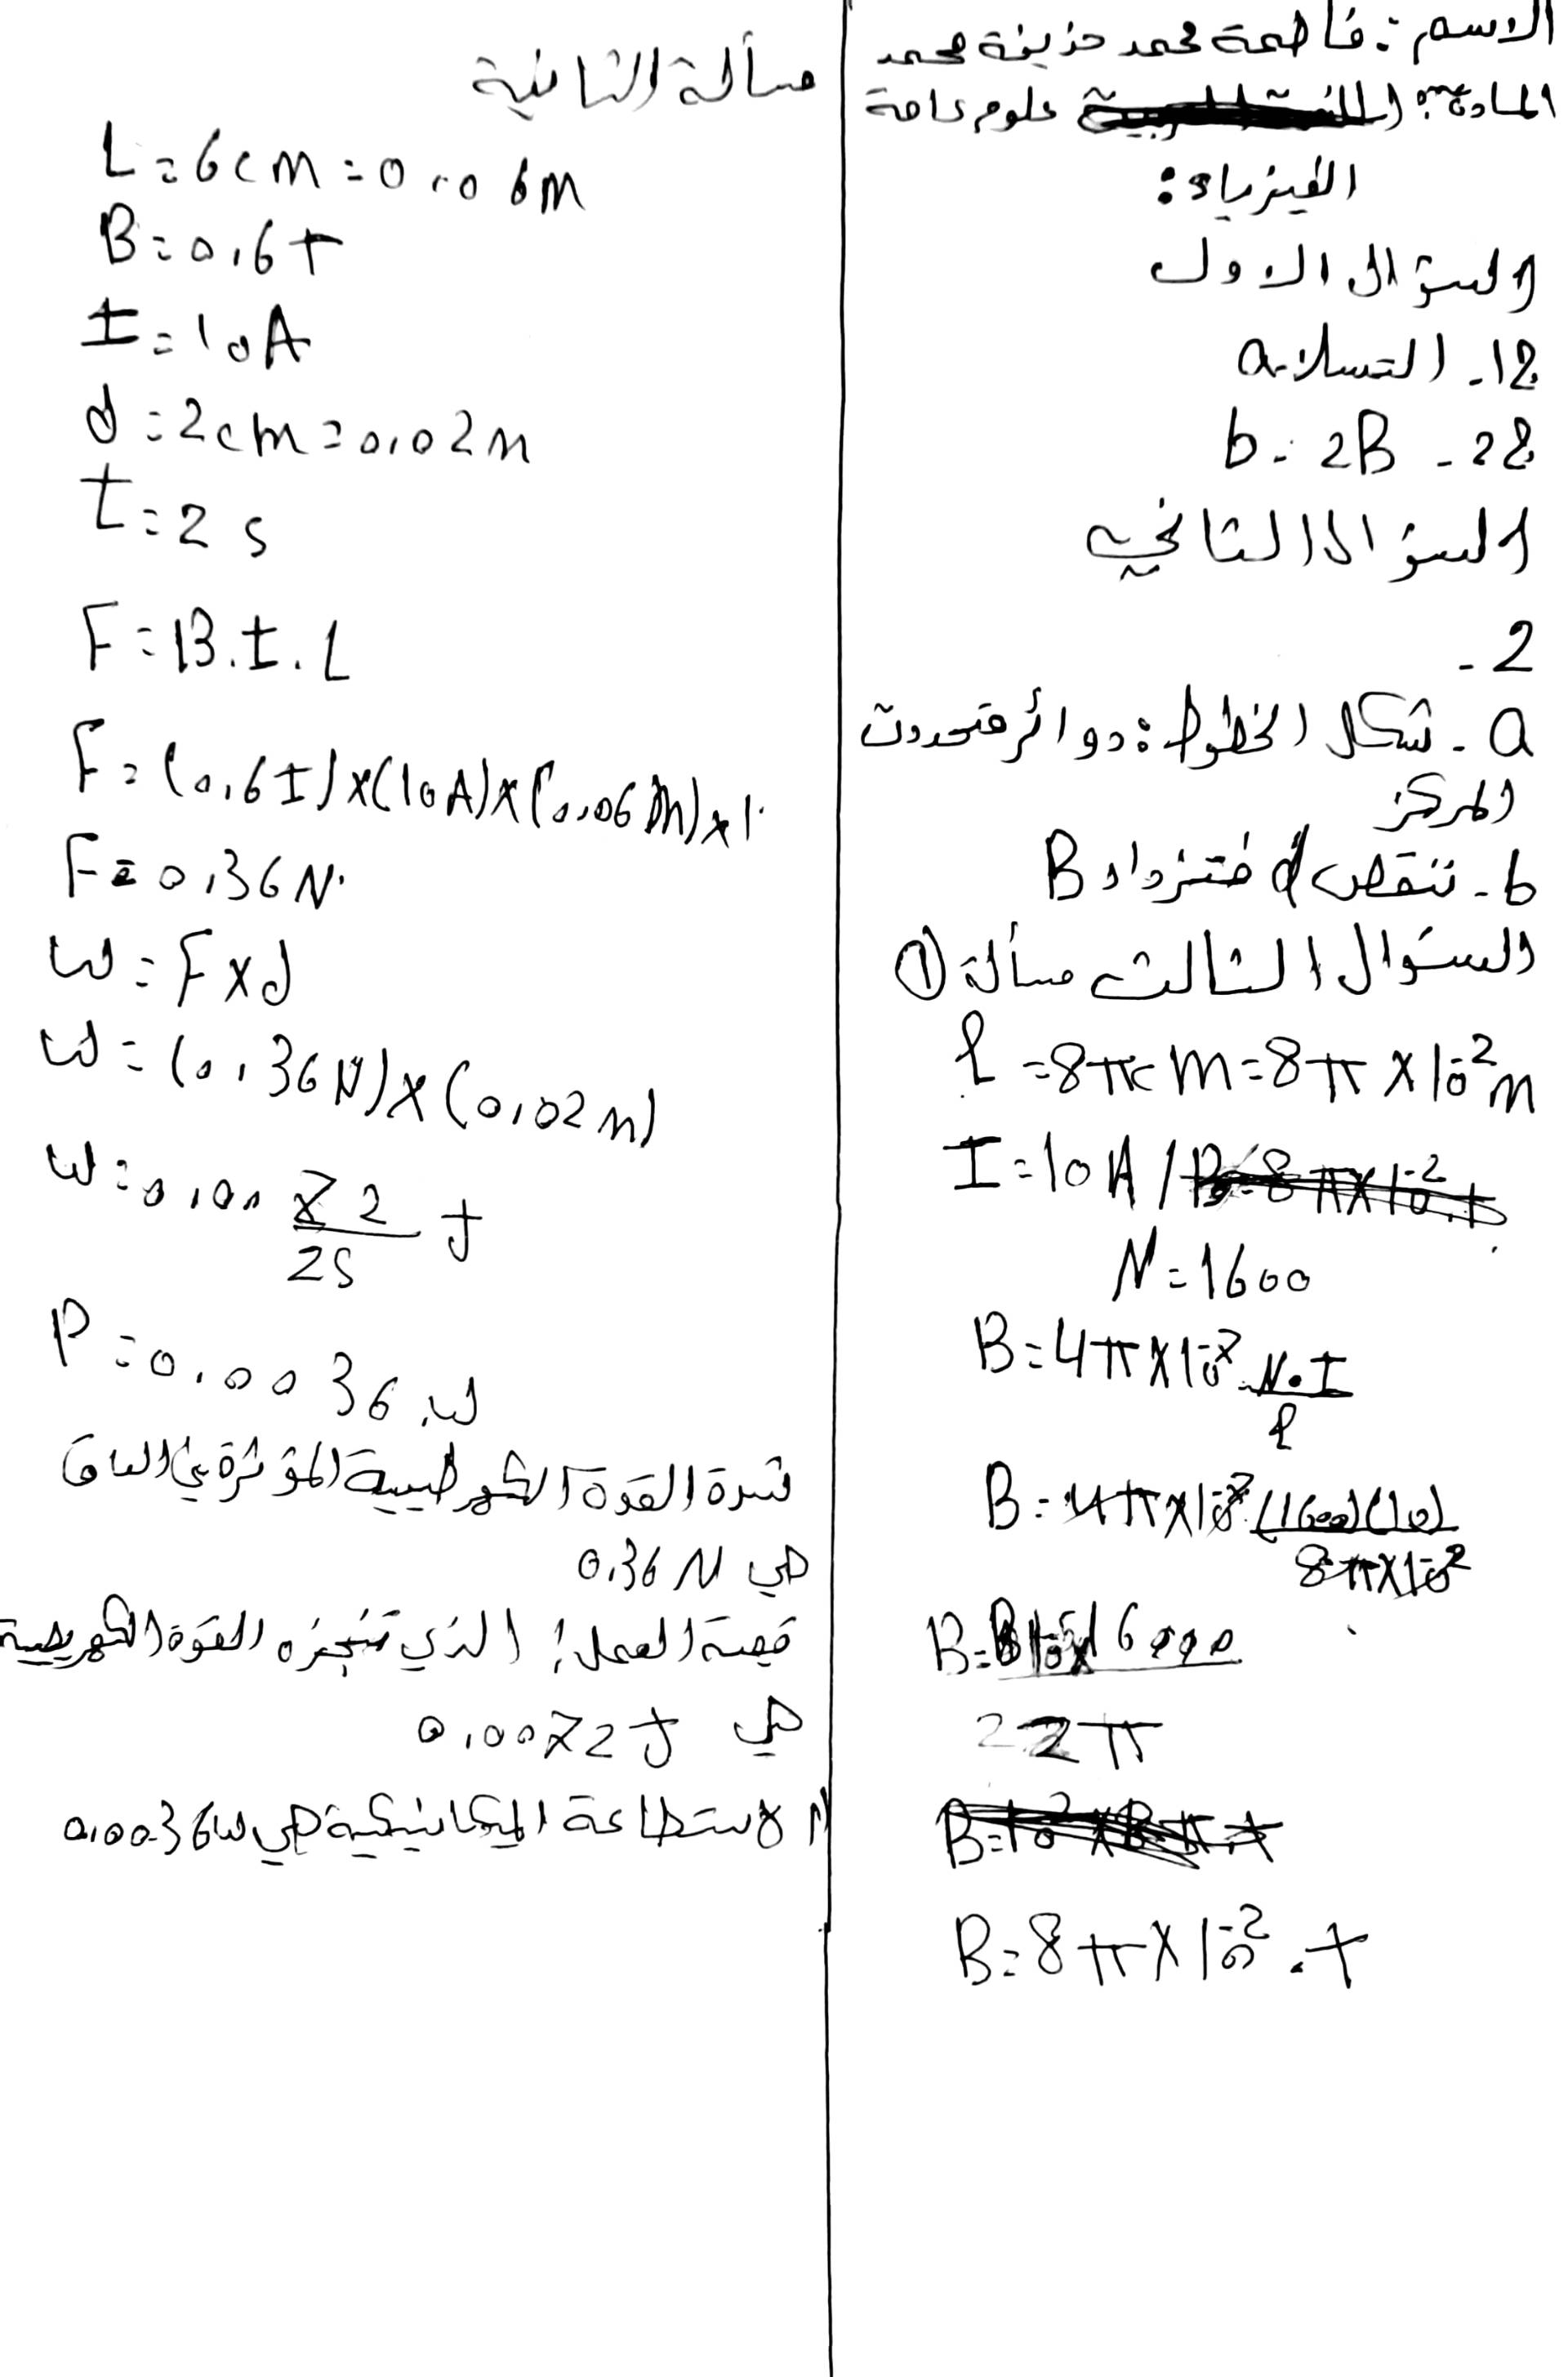 الاسم: فاطمة محمد حذيفة محمد
المادة: علوم عامة
الفيزياء:
السؤال الاول
12. التسلا. a
28 - b. 2B
السؤال الثاني
2 -
a - شكل الخطوط: دوائر متحدت
المركز
b - تنقص d فتزداد B
السؤال الثالث مسألة ①
l = 8πcm = 8π × 10⁻² m
I = 10A /
N = 1600
B = 4π × 10⁻⁷ N.I
l
B = 4π × 10⁻⁷ (1600)(10)
8π × 10⁻²
2π
B = 8π × 10⁻² .T
مسألة الثانية
L = 6cm = 0.06m
B = 0,6T
I = 10A
d = 2cm = 0,02m
t = 2 s
F = B.I.L
F = (0,6T)×(10A)×(0,06m)×1.
F = 0,36N.
W = F×d
W = (0,36N)×(0,02m)
W = 0,0072 J
2s
P = 0,0036 W
شدة القوة الكهرطيسية المؤثرة في الساق
هي 0,36 N
قيمة العمل: الذي تنجزه القوة الكهرطيسية
هي 0,0072 J
الاستطاعة الميكانيكية هي 0,0036 W